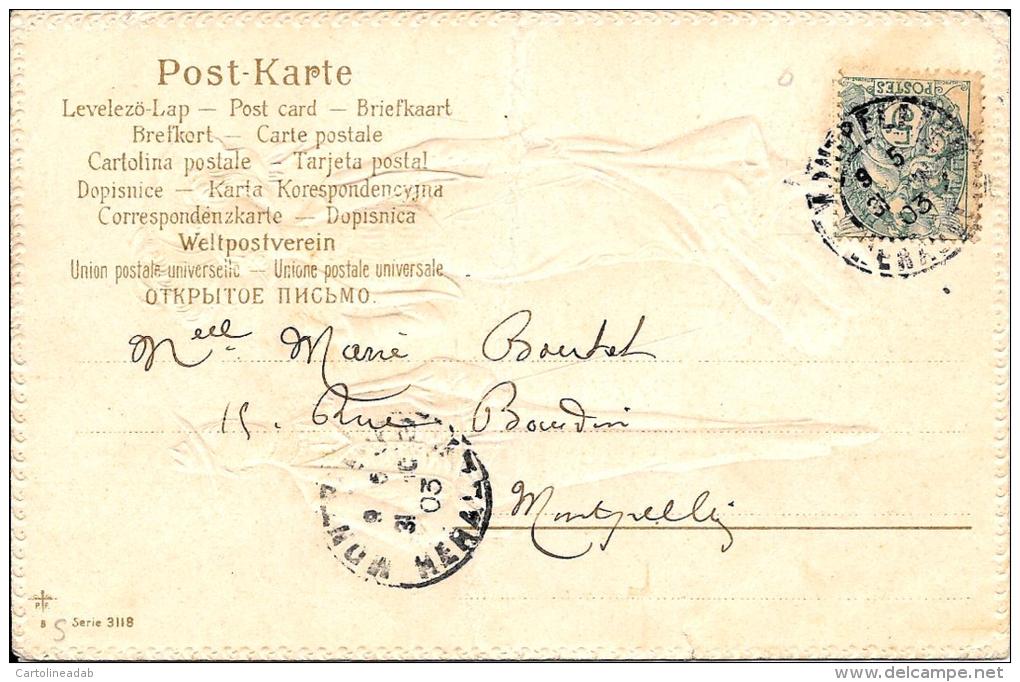 Post-Karte
Levelezö-Lap — Post card — Briefkaart
Brefkort — Carte postale
Cartolina postale — Tarjeta postal
Dopisnice — Karta Korespondencyjna
Correspondénzkarte — Dopisnica
Weltpostverein
Union postale universelle — Unione postale universale
ОТКРЫТОЕ ПИСЬМО.
POSTES
5
9
3
03
Melle Marie Boutet
15. Rue Baudin
Montpellier
5
9
31
03
HERAULT
P.F.
B
S
Serie 3118
Cartolineadab
www.delcampe.net